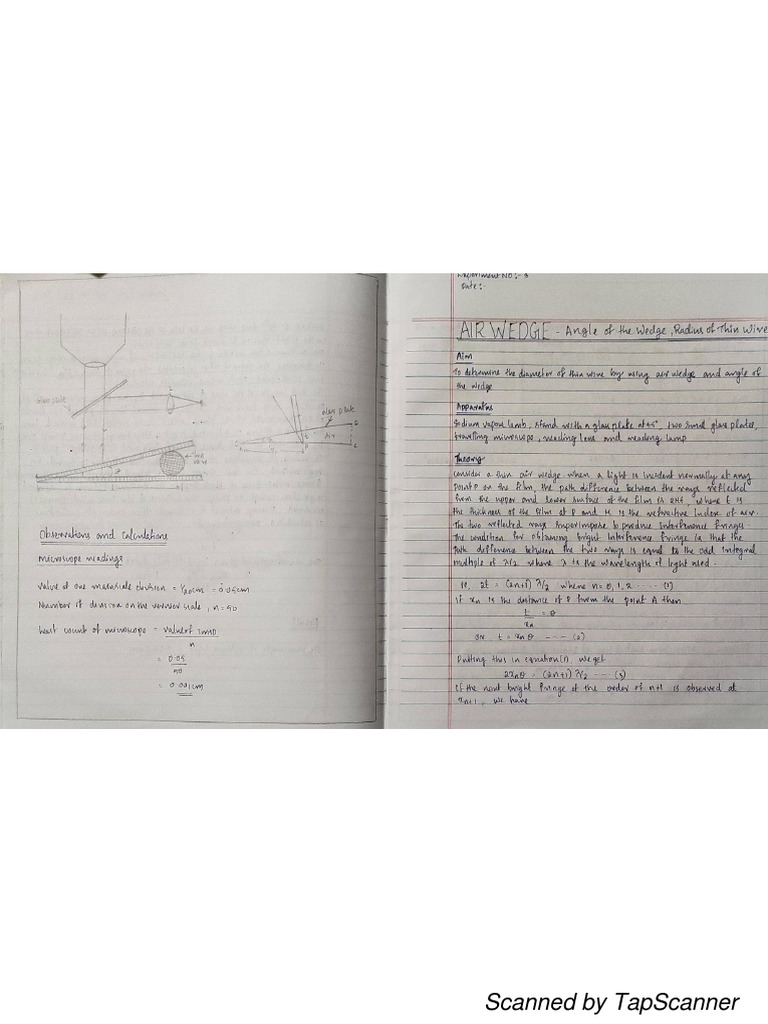 Glass plate
L
S
Thin
wire
glass plate
Air
Observations and Calculations
Microscope readings
Value of one main scale division = 1/20 cm = 0.05cm
Number of division on the vernier scale, n = 50
Least count of microscope = value of 1MSD
n
= 0.05
50
= 0.001cm
Experiment NO :- 3
Date :-
AIR WEDGE - Angle of the Wedge, Radius of Thin Wire
Aim
To determine the diameter of thin wire by using air wedge and angle of
the wedge
Apparatus
Sodium vapour lamb, stand with a glass plate at 45°, two small glass plates,
travelling microscope, reading lens and reading lamp
Theory
Consider a thin air wedge when a light is incident normally at any
point P on the film, the path difference between the rays reflected
from the upper and lower surface of the film is 2μt, where t is
the thickness of the film at P and μ is the refractive index of air.
The two reflected rays superimpose to produce interference fringes
The condition for obtaining bright interference fringe is that the
path difference between the two rays is equal to the odd integral
multiple of λ/2 where λ is the wavelength of light used.
ie, 2t = (2n+1) λ/2 where n = 0, 1, 2 ..... (1)
If xn is the distance of P from the point A then
t = θ
xn
or t = xn θ --- (2)
Putting this in equation (1) we get
2xnθ = (2n+1) λ/2 ---- (3)
If the next bright fringe of the order of n+1 is observed at
xn+1, we have
Scanned by TapScanner